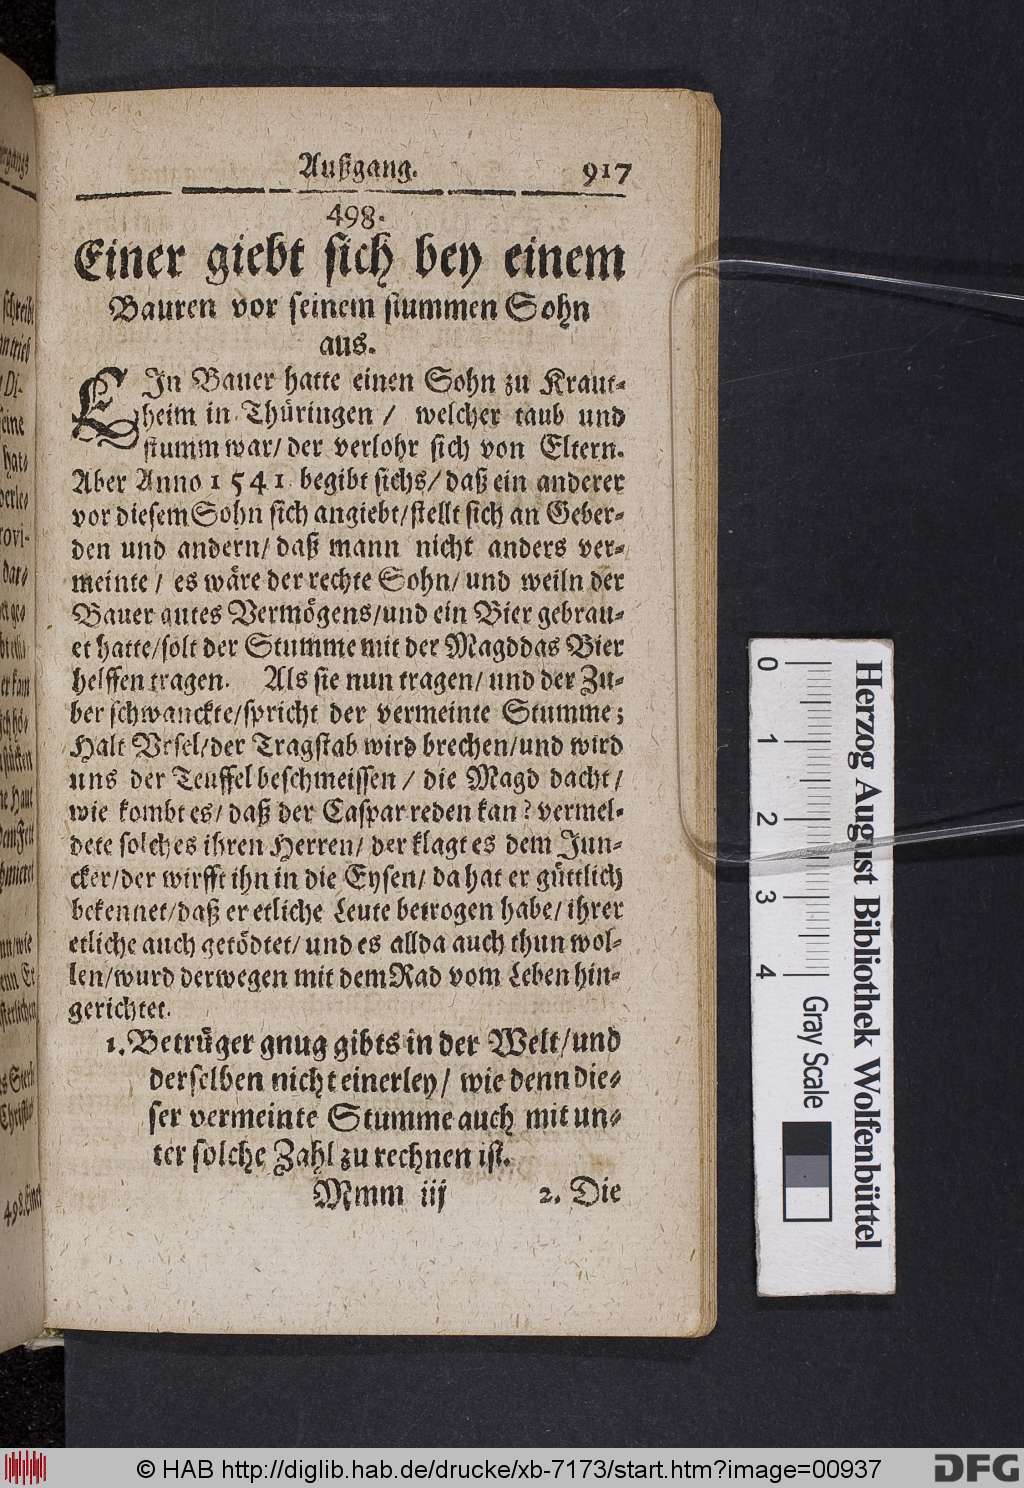 Außgang. 917
498.
Einer giebt sich bey einem
Bauren vor seinem stummen Sohn
aus.
EIn Bauer hatte einen Sohn zu Kraut-
heim in Thüringen / welcher taub und
stumm war/ der verlohr sich von Eltern.
Aber Anno 1541 begibt sichs/ daß ein anderer
vor diesem Sohn sich angiebt/ stellt sich an Geber-
den und andern/ daß mann nicht anders ver-
meinte / es wäre der rechte Sohn/ und weiln der
Bauer gutes Vermögens/und ein Bier gebrau-
et hatte/solt der Stumme mit der Magd das Bier
helffen tragen. Als sie nun tragen/ und der Zu-
ber schwanckte/spricht der vermeinte Stumme;
Halt Ursel/der Tragstab wird brechen/und wird
uns der Teuffel beschmeissen / die Magd dacht/
wie kombt es/ daß der Caspar reden kan? vermel-
dete solches ihren Herren/ der klagt es dem Jun-
cker/der wirfft ihn in die Eysen/ da hat er güttlich
bekennet/daß er etliche Leute betrogen habe/ ihrer
etliche auch getödtet/ und es allda auch thun wol-
len/wurd derwegen mit dem Rad vom Leben hin-
gerichtet.
1. Betrüger gnug gibts in der Welt/und
derselben nicht einerley/ wie denn die-
ser vermeinte Stumme auch mit un-
ter solche Zahl zu rechnen ist.
Mmm iij 2. Die
498. Einer
0 1 2 3 4
Gray Scale
Herzog August Bibliothek Wolfenbüttel
© HAB http://diglib.hab.de/drucke/xb-7173/start.htm?image=00937
DFG